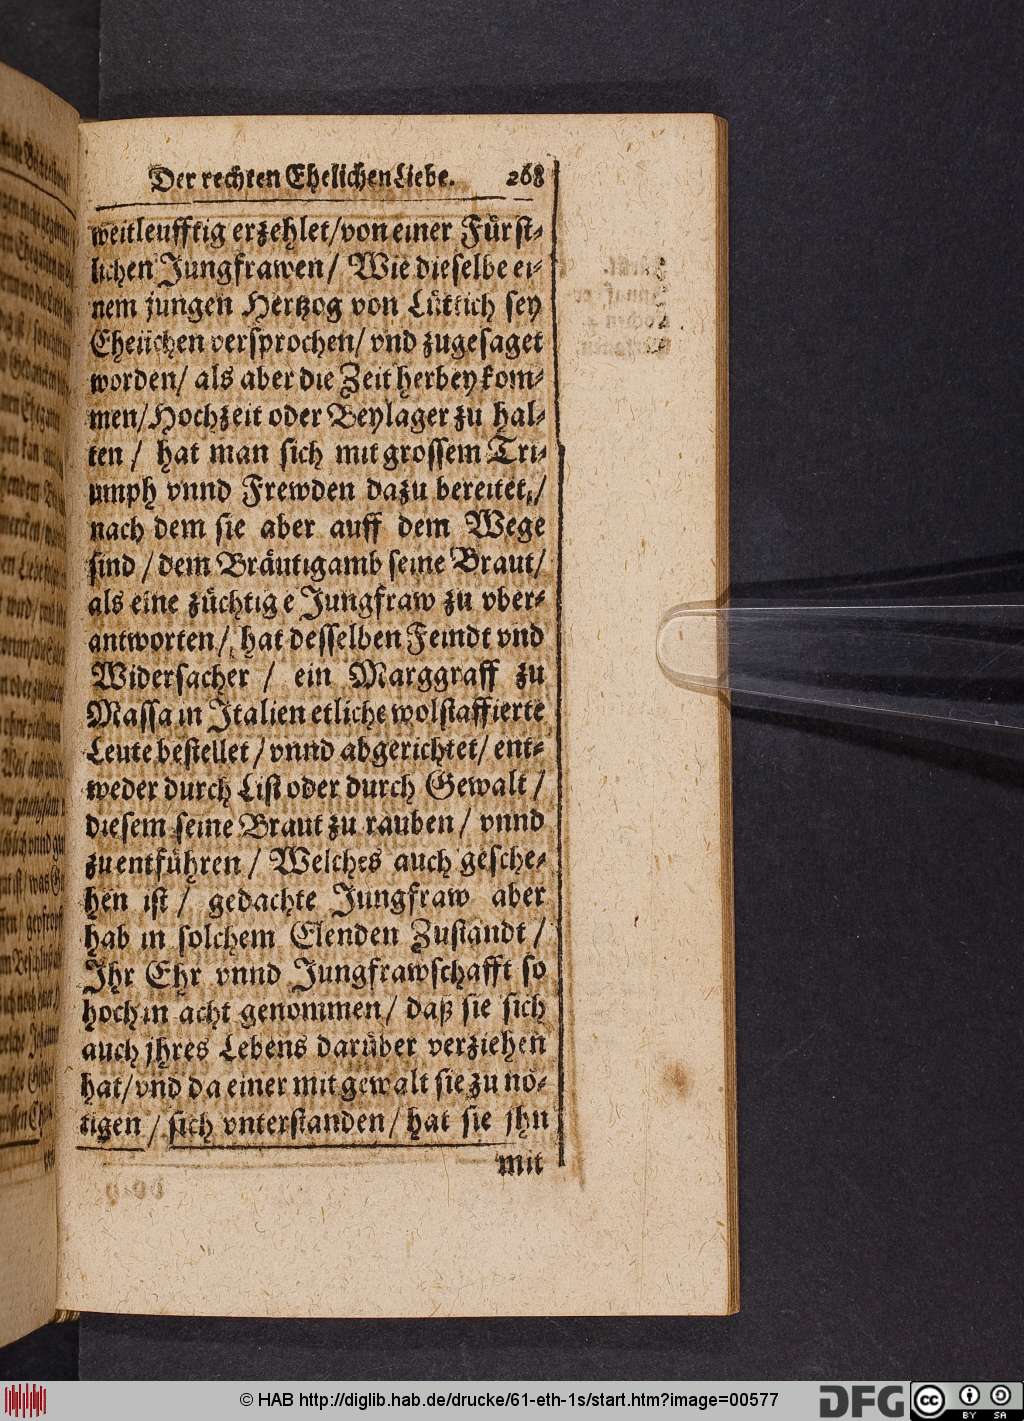 Der rechten Ehelichen Liebe. 268
weitleufftig erzehlet/von einer Fürst-
lichen Jungfrawen/ Wie dieselbe ei-
nem jungen Hertzog von Lüttich sey
Ehelichen versprochen/ vnd zugesaget
worden/ als aber die Zeit herbey kom-
men/Hochzeit oder Beylager zu hal-
ten / hat man sich mit grossem Tri-
umph vnnd Frewden dazu bereitet/
nach dem sie aber auff dem Wege
sind / dem Bräutigamb seine Braut/
als eine züchtige Jungfraw zu vber-
antworten/ hat desselben Feindt vnd
Widersacher / ein Marggraff zu
Massa in Italien etliche wolstaffierte
Leute bestellet / vnnd abgerichtet/ ent-
weder durch List oder durch Gewalt /
diesem seine Braut zu rauben / vnnd
zu entführen / Welches auch gesche-
hen ist / gedachte Jungfraw aber
hab in solchem Elenden Zustandt /
Ihr Ehr vnnd Jungfrawschafft so
hoch in acht genommen/ daß sie sich
auch jhres Lebens darüber verziehen
hat/vnd da einer mit gewalt sie zu nö-
tigen / sich vnterstanden/ hat sie jhn
mit
© HAB http://diglib.hab.de/drucke/61-eth-1s/start.htm?image=00577
DFG
cc
BY SA